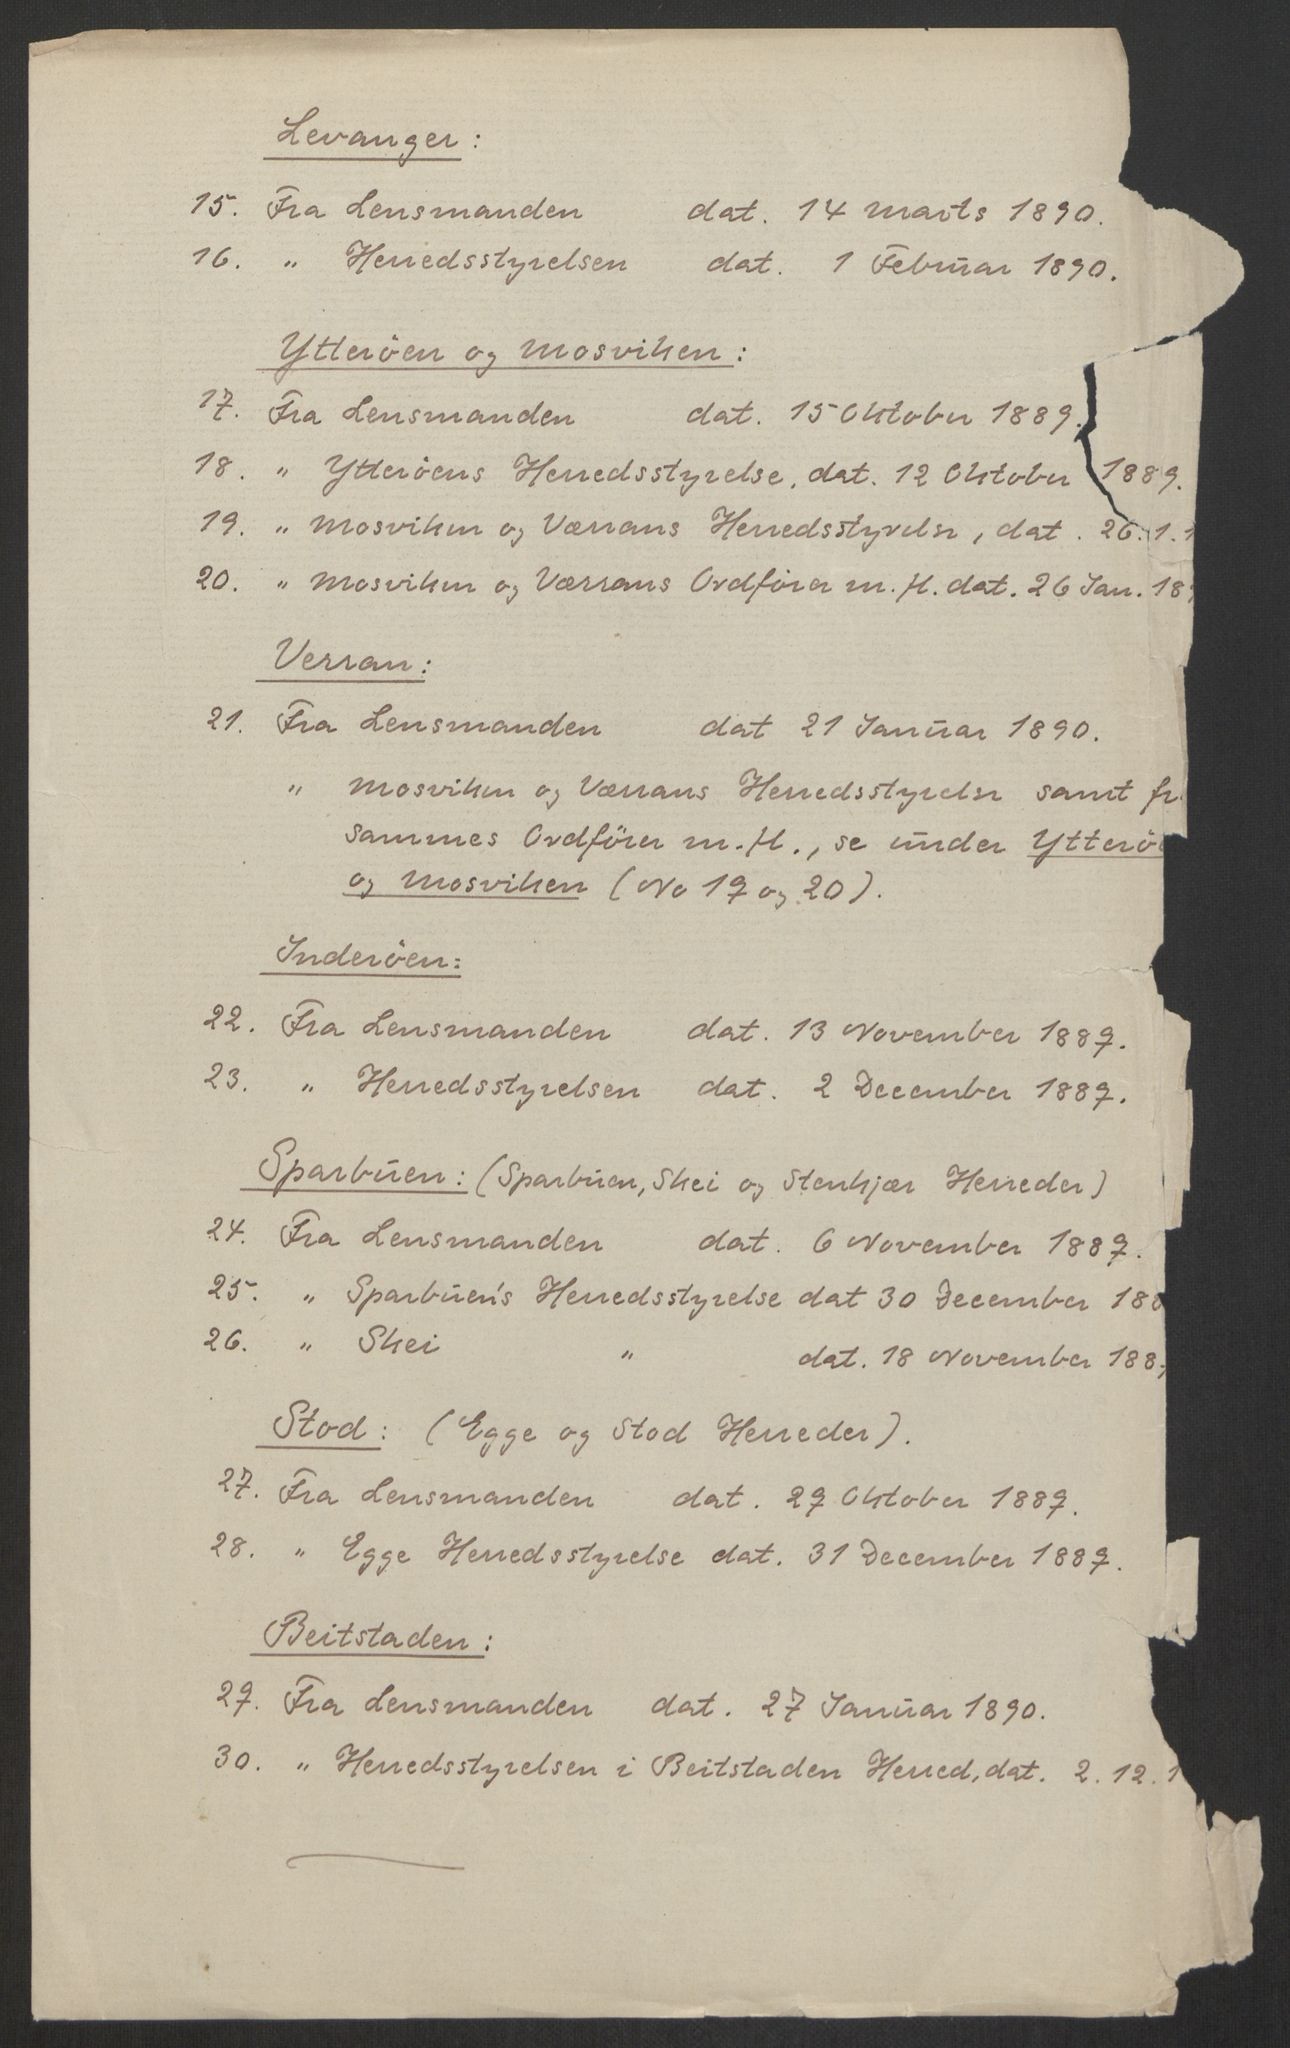 Levanger:
15. Fra Lensmanden dat. 14 Marts 1890.
16. " Herredsstyrelsen dat. 1 Februar 1890.
Ytteröen og Mosviken:
17. Fra Lensmanden dat. 15 Oktober 1889.
18. " Ytteröens Herredsstyrelse, dat. 12 Oktober 1889.
19. " Mosviken og Værrans Herredsstyrelse, dat. 26.1.1
20. " Mosviken og Værrans Ordförer m.fl. dat. 26 Jan. 18
Verran:
21. Fra Lensmanden dat 21 Januar 1890.
" Mosviken og Værrans Herredsstyrelse samt
sammes Ordförer m.fl., se under Ytterö
og Mosviken (No 19 og 20).
Inderöen:
22. Fra Lensmanden dat. 13 November 1889.
23. " Herredsstyrelsen dat. 2 December 1889.
Sparbuen: (Sparbuen, Skei og Stenkjær Herreder)
24. Fra Lensmanden dat. 6 November 1889.
25. " Sparbuen's Herredsstyrelse dat 30 December 188
26. " Skei " dat. 18 November 188
Stod: (Egge og Stod Herreder).
27. Fra Lensmanden dat. 29 Oktober 1889.
28. " Egge Herredsstyrelse dat. 31 December 1889.
Beitstaden:
29. Fra Lensmanden dat. 27 Januar 1890.
30. " Herredsstyrelsen i Beitstaden Herred, dat. 2.12.1